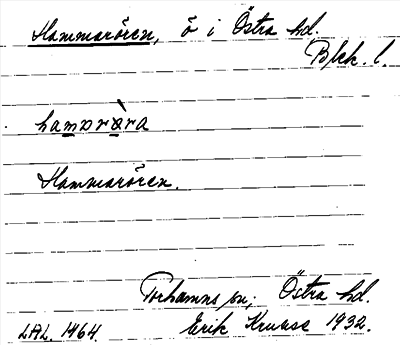 Hammarören, ö i Östra hd.
Blek. l.
hamɒrὰra
Hammarören.
Torhamns sn, Östra hd.
LAL. 1464. Erik Kruuse 1932.